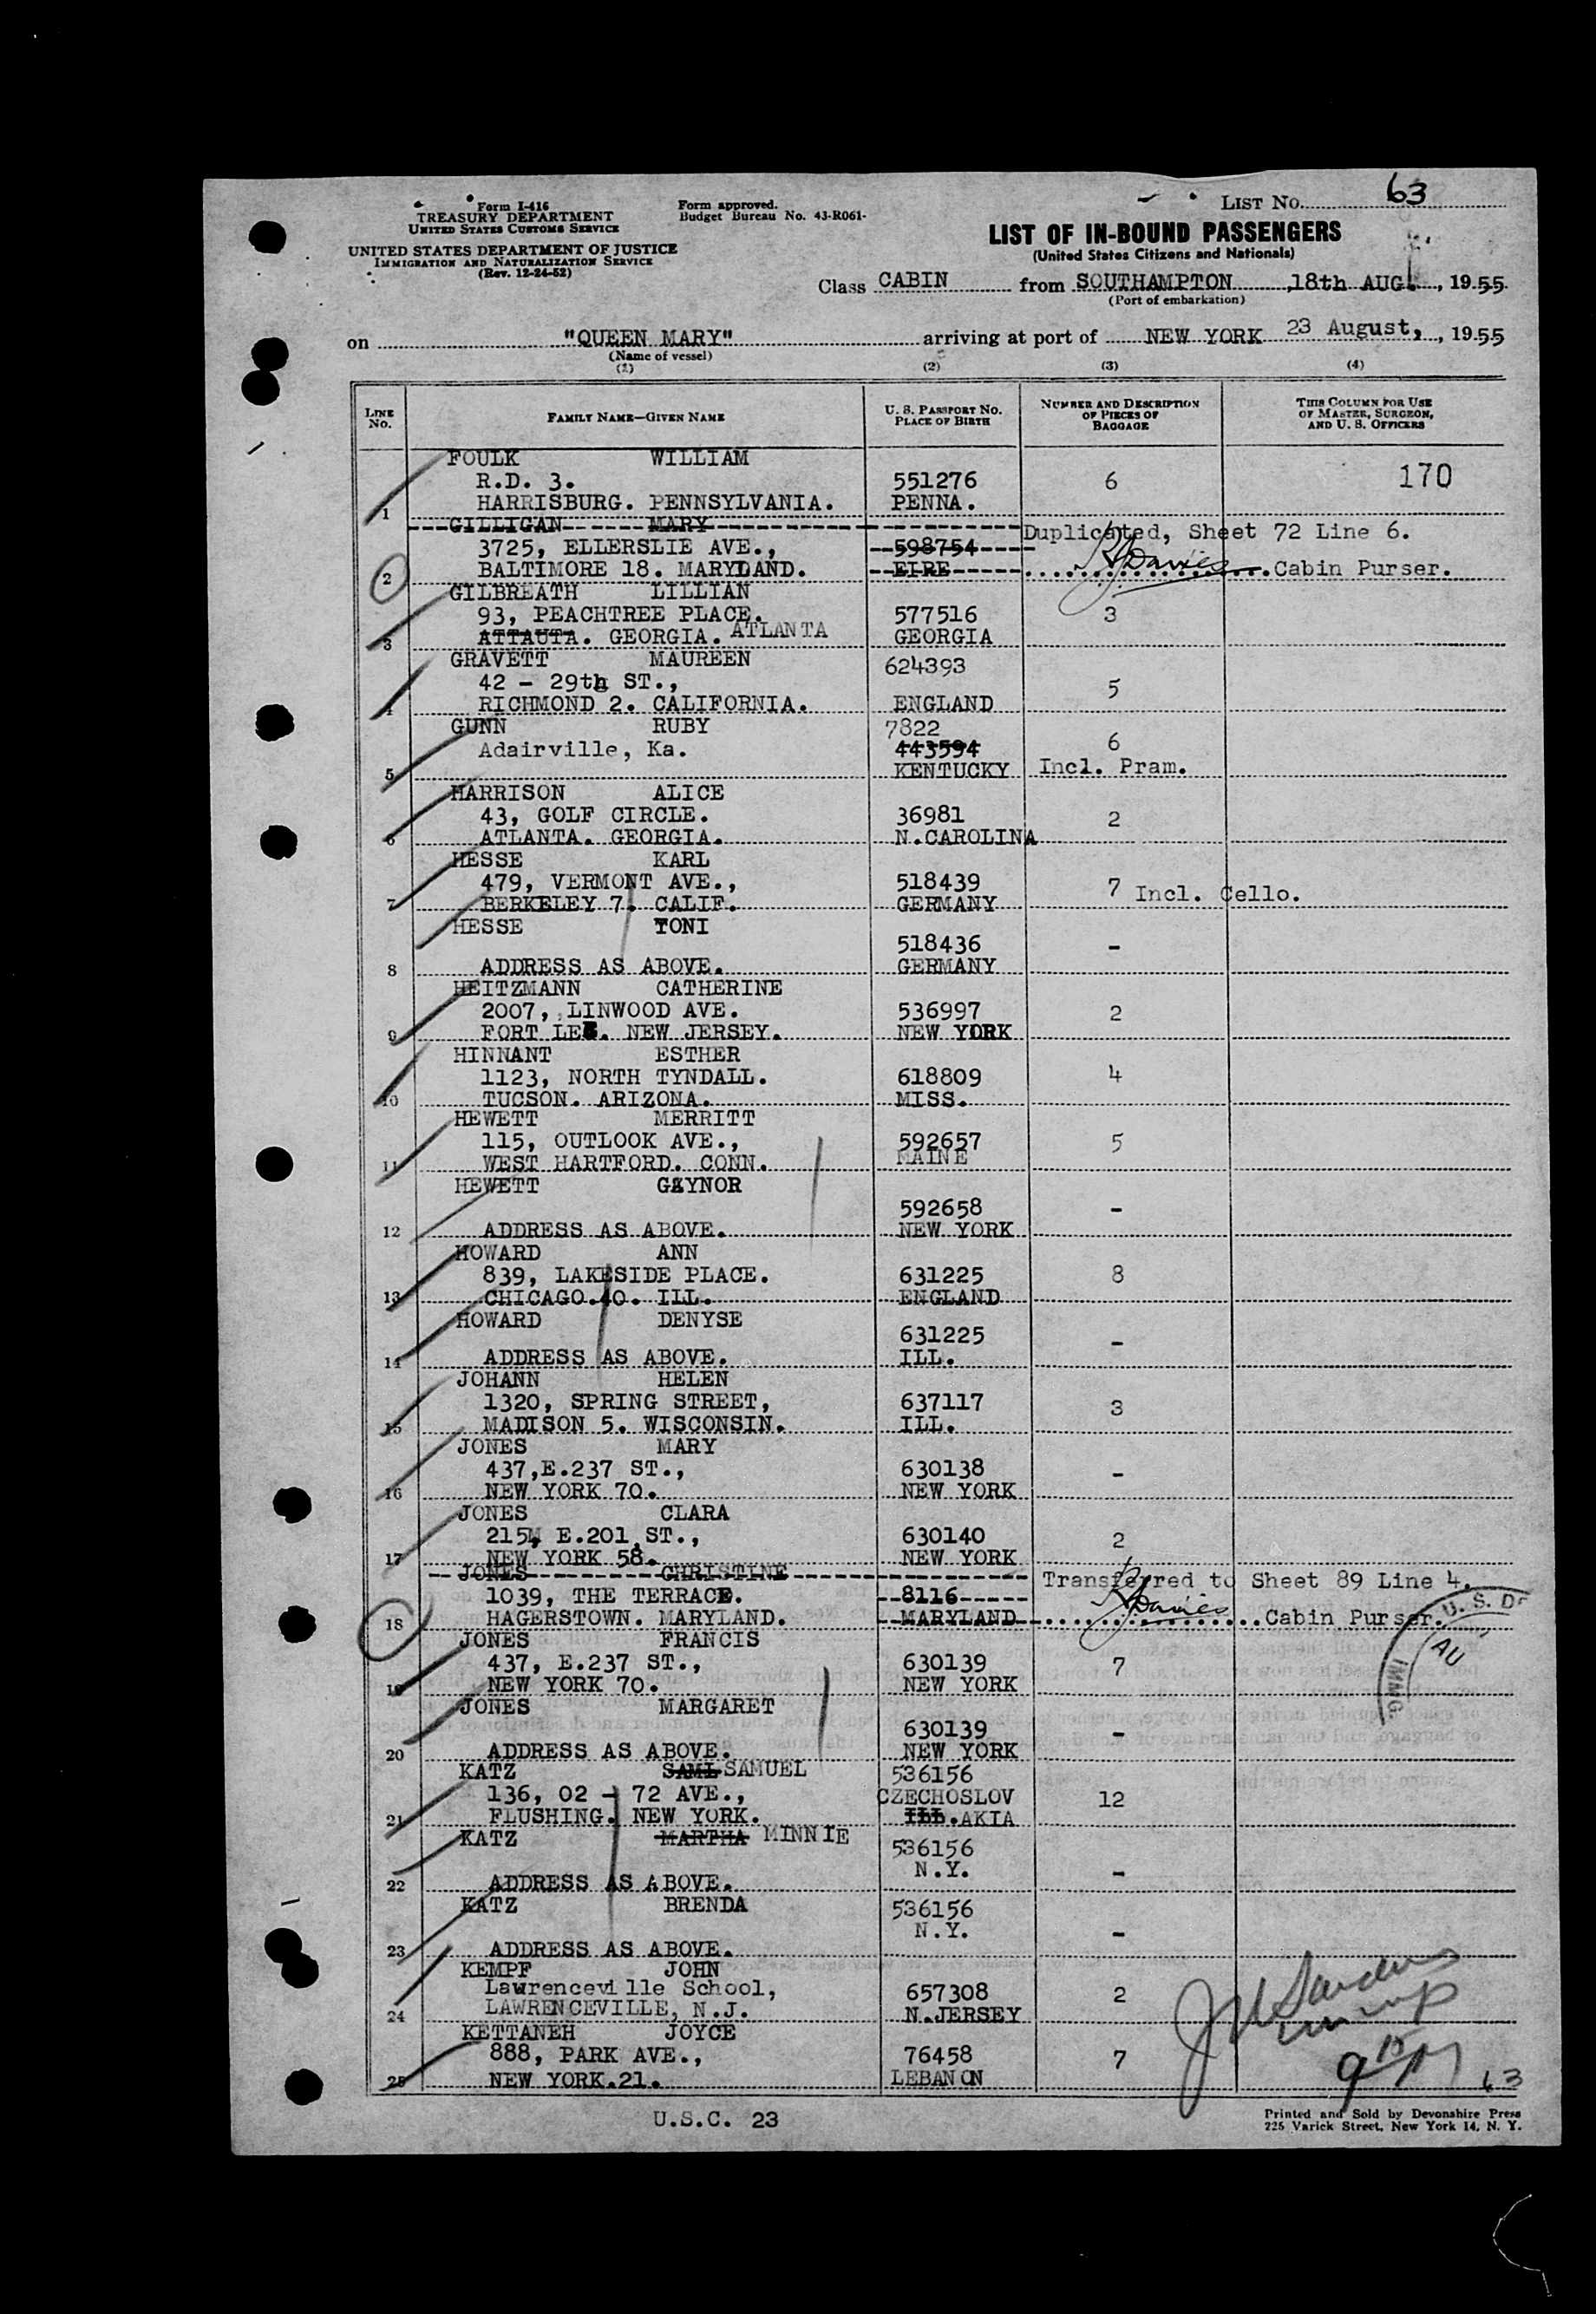 Form I-416
TREASURY DEPARTMENT
UNITED STATES CUSTOMS SERVICE
UNITED STATES DEPARTMENT OF JUSTICE
IMMIGRATION AND NATURALIZATION SERVICE
(Rev. 12-24-52)
Form approved.
Budget Bureau No. 43-R061-
LIST NO. 63
LIST OF IN-BOUND PASSENGERS
(United States Citizens and Nationals)
Class CABIN from SOUTHAMPTON, 18th AUG., 1955
(Port of embarkation)
on "QUEEN MARY" arriving at port of NEW YORK 23 August, 1955
(Name of vessel)
(1) (2) (3) (4)
LINE NO.
FAMILY NAME—GIVEN NAME
U. S. PASSPORT NO.
PLACE OF BIRTH
NUMBER AND DESCRIPTION
OF PIECES OF
BAGGAGE
THIS COLUMN FOR USE
OF MASTER, SURGEON,
AND U. S. OFFICERS
FOULK WILLIAM
R.D. 3. 551276 6 170
1 HARRISBURG. PENNSYLVANIA. PENNA.
GILLIGAN MARY Duplicated, Sheet 72 Line 6.
3725, ELLERSLIE AVE., 598754
2 BALTIMORE 18. MARYLAND. EIRE Davies Cabin Purser.
GILBREATH LILLIAN
93, PEACHTREE PLACE. 577516 3
3 ATTAUTA. GEORGIA. ATLANTA GEORGIA
GRAVETT MAUREEN 624393
42 - 29th ST., 5
4 RICHMOND 2. CALIFORNIA. ENGLAND
GUNN RUBY 7822
Adairville, Ka. 443594 6
5 KENTUCKY Incl. Pram.
HARRISON ALICE
43, GOLF CIRCLE. 36981 2
6 ATLANTA. GEORGIA. N.CAROLINA
HESSE KARL
479, VERMONT AVE., 518439 7 Incl. Cello.
7 BERKELEY 7. CALIF. GERMANY
HESSE TONI
518436 -
8 ADDRESS AS ABOVE. GERMANY
HEITZMANN CATHERINE
2007, LINWOOD AVE. 536997 2
9 FORT LEE. NEW JERSEY. NEW YORK
HINNANT ESTHER
1123, NORTH TYNDALL. 618809 4
10 TUCSON. ARIZONA. MISS.
HEWETT MERRITT
115, OUTLOOK AVE., 592657 5
11 WEST HARTFORD. CONN. MAINE
HEWETT GAYNOR
592658 -
12 ADDRESS AS ABOVE. NEW YORK
HOWARD ANN
839, LAKESIDE PLACE. 631225 8
13 CHICAGO.40. ILL. ENGLAND
HOWARD DENYSE
631225 -
14 ADDRESS AS ABOVE. ILL.
JOHANN HELEN
1320, SPRING STREET, 637117 3
15 MADISON 5. WISCONSIN. ILL.
JONES MARY
437,E.237 ST., 630138 -
16 NEW YORK 70. NEW YORK
JONES CLARA
2154, E.201 ST., 630140 2
17 NEW YORK 58. NEW YORK
JONES CHRISTINE Transferred to Sheet 89 Line 4.
1039, THE TERRACE. 8116
18 HAGERSTOWN. MARYLAND. MARYLAND Davies Cabin Purser.
JONES FRANCIS
437, E.237 ST., 630139 7
19 NEW YORK 70. NEW YORK
JONES MARGARET
630139 -
20 ADDRESS AS ABOVE. NEW YORK
KATZ SAML SAMUEL 536156
136, 02 - 72 AVE., CZECHOSLOV 12
21 FLUSHING. NEW YORK. ILL.AKIA
KATZ MARTHA MINNIE 536156
N.Y. -
22 ADDRESS AS ABOVE.
KATZ BRENDA 536156
N.Y. -
23 ADDRESS AS ABOVE.
KEMPF JOHN
Lawrenceville School, 657308 2
24 LAWRENCEVILLE, N.J. N.JERSEY
KETTANEH JOYCE
888, PARK AVE., 76458 7
25 NEW YORK.21. LEBANON
U. S. DE
AU
IMMG.
63
U.S.C. 23
Printed and Sold by Devonshire Press
225 Varick Street, New York 14, N. Y.